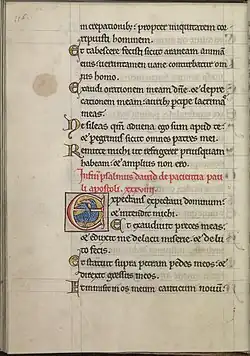 in crepationib; propter iniquitatem cor
ripuisti hominem.
Et tabescere fecisti sicut araneam animam
eius: uerumtamen uane conturbatur om
nis homo.
Exaudi orationem meam dñe: et depre
cationem meam: aurib; percipe lacrimas
meas.
Ne sileas qm̄ aduena ego sum apud te:
et peregrinus sicut omnes patres mei.
Remitte michi ut refrigerer priusquam
habeam: et amplius non ero.
In finē psalmus dauid de pacientia pau
li apostoli. xxxviiii.
Expectans expectaui dominum:
et intendit michi.
Et exaudiuit preces meas:
et eduxit me de lacu miserie: et de lu
to fecis.
Et statuit supra petram pedes meos: et
direxit gressus meos.
Et inmisit in os meum canticum nouū: